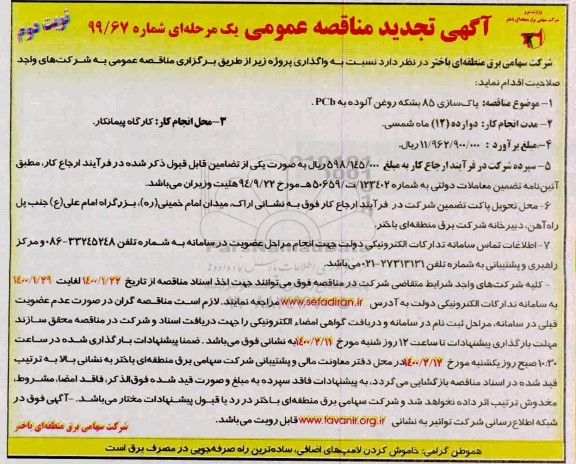 وزارت نیرو
شرکت سهامی برق منطقه‌ای باختر
آگهی تجدید مناقصه عمومی یک مرحله‌ای شماره ۹۹/۶۷
نوبت دوم
شرکت سهامی برق منطقه‌ای باختر در نظر دارد نسبت به واگذاری پروژه زیر از طریق برگزاری مناقصه عمومی به شرکت‌های واجد
صلاحیت اقدام نماید:
۱- موضوع مناقصه: پاک‌سازی ۸۵ بشکه روغن آلوده به PCb.
۲- مدت انجام کار: دوازده (۱۲) ماه شمسی. ۳- محل انجام کار: کارگاه پیمانکار.
۴- مبلغ برآورد : ۱۱/۹۶۲/۹۰۰/۰۰۰ ریال.
۵- سپرده شرکت در فرآیند ارجاع کار به مبلغ ۵۹۸/۱۴۵/۰۰۰ ریال به صورت یکی از تضامین قابل قبول ذکر شده در فرآیند ارجاع کار، مطابق
آئین‌نامه تضمین معاملات دولتی به شماره ۱۲۳۴۰۲/ت۵۰۶۵۹هـ مورخ ۹۴/۹/۲۲ هئیت وزیران می‌باشد.
۶- محل تحویل پاکت تضمین شرکت در فرآیند ارجاع کار فوق به نشانی اراک، میدان امام خمینی(ره)، بزرگراه امام علی(ع) جنب پل
راه‌آهن، دبیرخانه شرکت برق منطقه‌ای باختر.
۷- اطلاعات تماس سامانه تدارکات الکترونیکی دولت جهت انجام مراحل عضویت در سامانه به شماره تلفن ۳۳۲۴۵۲۴۸-۰۸۶ و مرکز
راهبری و پشتیبانی به شماره تلفن ۲۷۳۱۳۱۳۱-۰۲۱ می‌باشد.
- کلیه شرکت‌های واجد شرایط متقاضی شرکت در مناقصه فوق می‌توانند جهت اخذ اسناد مناقصه از تاریخ ۱۴۰۰/۱/۲۲ لغایت ۱۴۰۰/۱/۲۹
به سامانه تدارکات الکترونیکی دولت به آدرس www.sefadiran.ir مراجعه نمایند. لازم است مناقصه گران در صورت عدم عضویت
قبلی در سامانه، مراحل ثبت نام در سامانه و دریافت گواهی امضاء الکترونیکی را جهت دریافت اسناد و شرکت در مناقصه محقق سازند
مهلت بارگذاری پیشنهادات تا ساعت ۱۲ روز شنبه مورخ ۱۴۰۰/۲/۱۱ به نشانی فوق می‌باشد. ضمنا پیشنهادات بارگذاری شده در ساعت
۱۰:۳۰ صبح روز یکشنبه مورخ ۱۴۰۰/۲/۱۲ در محل دفتر معاونت مالی و پشتیبانی شرکت سهامی برق منطقه‌ای باختر به نشانی بالا به ترتیب
قید شده در اسناد مناقصه بازگشایی می‌گردد. به پیشنهادات فاقد سپرده به مبلغ و صورت قید شده فوق‌الذکر، فاقد امضا، مشروط،
مخدوش ترتیب اثر داده نخواهد شد و شرکت سهامی برق منطقه‌ای باختر در رد یا قبول پیشنهادات مختار می‌باشد. -آگهی فوق در
شبکه اطلاع رسانی شرکت توانیر به نشانی www.tavanir.org.ir قابل رویت می‌باشد.
شرکت سهامی برق منطقه‌ای باختر
هموطن گرامی: خاموش کردن لامپ‌های اضافی، ساده‌ترین راه صرفه‌جویی در مصرف برق است